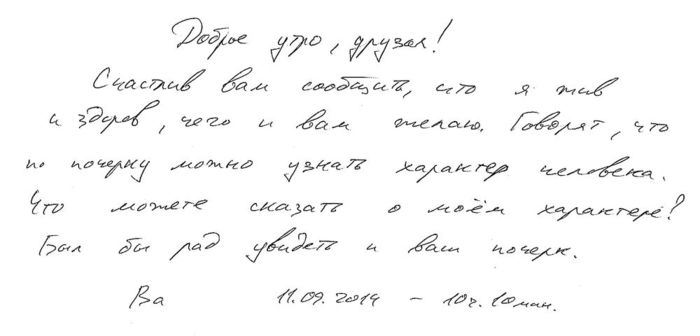 Доброе утро, друзья!
Счастлив вам сообщить, что я жив
и здоров, чего и вам желаю. Говорят, что
по почерку можно узнать характер человека.
Что можете сказать о моём характере?
Был бы рад увидеть и ваш почерк.
Ва 11.09.2014 - 10ч. 10мин.